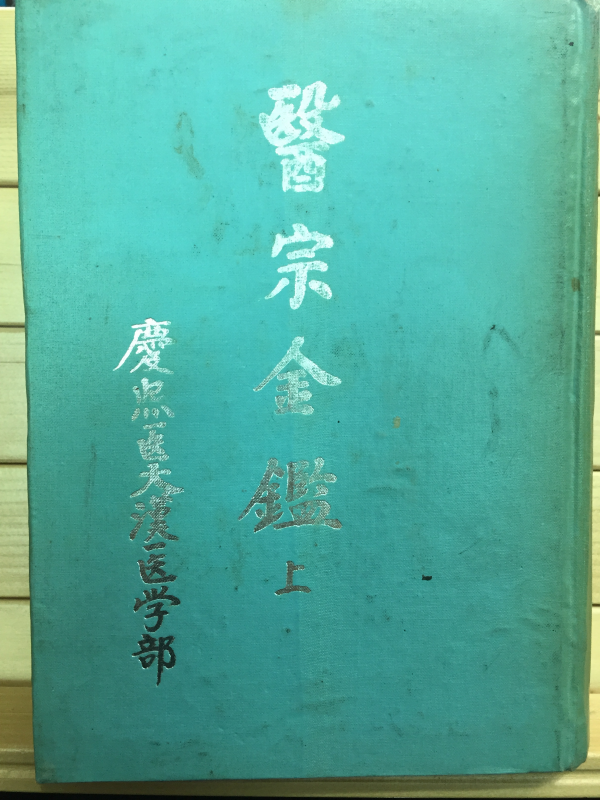 醫宗金鑑 上
慶熙医大漢医学部